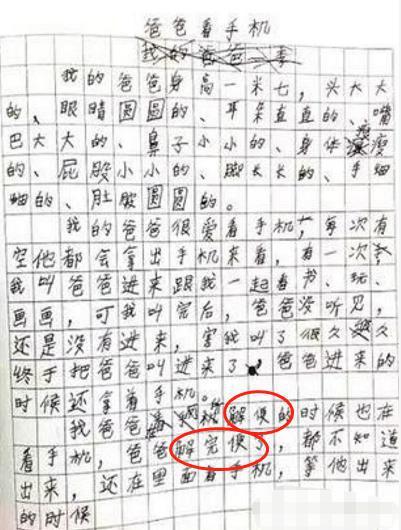 爸爸看手机
我的爸爸 李
我的爸爸身高一米七，头大大
的、眼睛圆圆的、耳朵直直的、嘴
巴大大的、鼻子小小的、身体瘦瘦
的、屁股小小的、脚长长的、手细
细的、肚皮圆圆的。
我的爸爸很爱看手机，每次有
空他都会拿出手机来看，有一次，
我叫爸爸进来跟我一起看书、玩、
画画，可我叫完后，爸爸没听见，
还是没有进来，害我叫了很久
终于把爸爸叫进来了，爸爸进来的
时候还拿着手机。
我爸爸 解便的时候也在
看手机，爸爸解完便了，都不知道
出来，还在里面看手机，等他出来
的时候